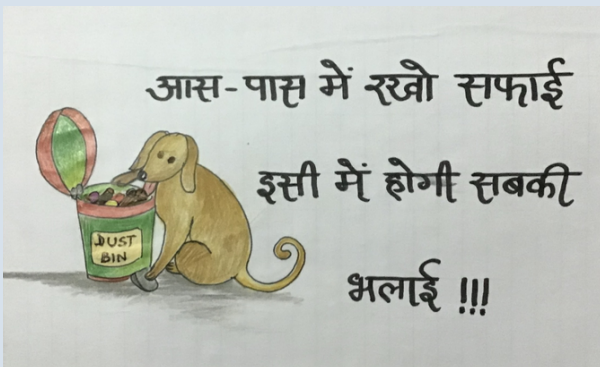 आस-पास में रखो सफाई
इसी में होगी सबकी
भलाई !!!
DUST
BIN